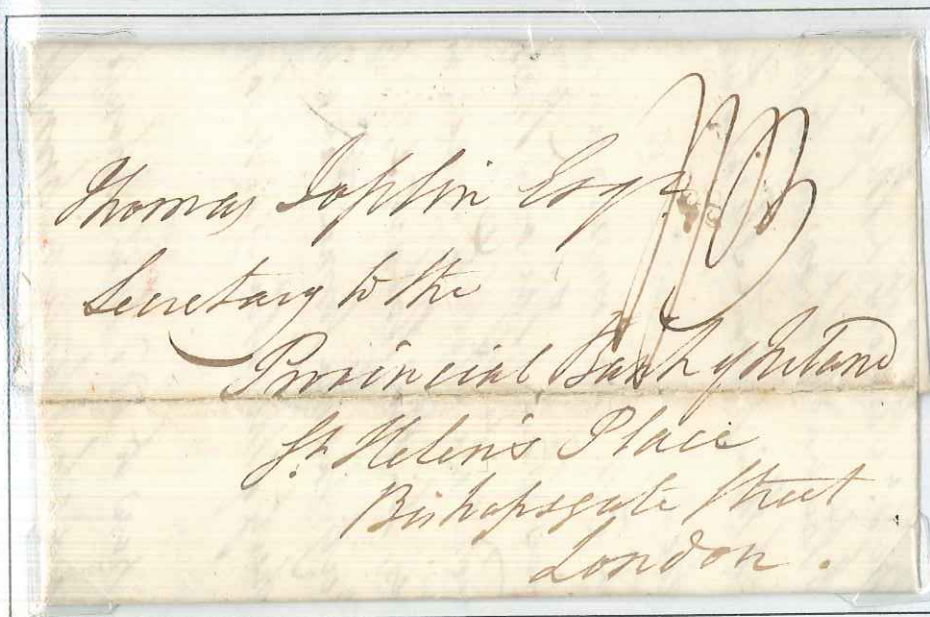 Thomas Joplin Esqr.
Secretary to the
Provincial Bank of Ireland
St. Helen's Place
Bishopsgate Street
London.